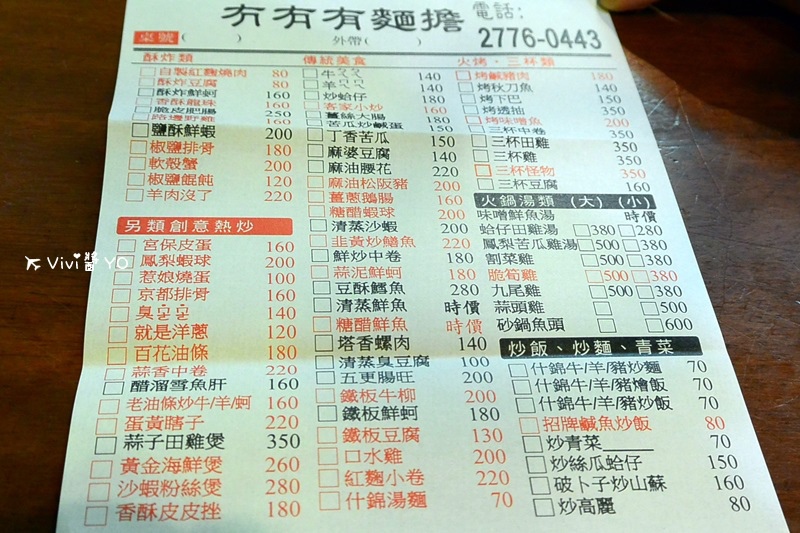 冇有有麵擔 電話:
2776-0443
桌號( ) 外帶( )
酥炸類
自製紅麴燒肉 80
酥炸豆腐 80
酥炸鮮蚵 160
香酥龍珠 160
脆皮肥腸 250
路邊野雞 160
鹽酥鮮蝦 200
椒鹽排骨 180
軟殼蟹 200
椒鹽餛飩 120
羊肉沒了 220
另類創意熱炒
宮保皮蛋 160
鳳梨蝦球 200
惹娘燒蛋 100
京都排骨 180
臭ㄹㄹ 140
就是洋蔥 120
百花油條 180
蒜香中卷 220
醋溜雪魚肝 160
老油條炒牛/羊/蚵 160
蛋黃瞎子 220
蒜子田雞煲 350
黃金海鮮煲 260
沙蝦粉絲煲 280
香酥皮皮挫 180
傳統美食
牛ㄡㄡ 140
羊ㄡㄡ 140
炒蛤仔 180
客家小炒 160
薑絲大腸 180
苦瓜炒鹹蛋 150
丁香苦瓜 150
麻婆豆腐 140
麻油腰花 220
麻油松阪豬 200
薑蔥鵝腸 160
糖醋蝦球 200
清蒸沙蝦 200
韭黃炒鱔魚 220
鮮炒中卷 180
蒜泥鮮蚵 180
豆酥鱈魚 280
清蒸鮮魚 時價
糖醋鮮魚 時價
塔香螺肉 140
清蒸臭豆腐 100
五更腸旺 200
鐵板牛柳 200
鐵板鮮蚵 180
鐵板豆腐 130
口水雞 200
紅麴小卷 220
什錦湯麵 70
火烤、三杯類
烤鹹豬肉 180
烤秋刀魚 140
烤下巴 150
烤透抽 350
烤味噌魚 200
三杯中卷 350
三杯田雞 350
三杯雞 350
三杯怪物 350
三杯豆腐 160
火鍋湯類 (大) (小)
味噌鮮魚湯 時價
蛤仔田雞湯 380 280
鳳梨苦瓜雞湯 500 380
割菜雞 500 380
脆筍雞 500 380
九尾雞 500 380
蒜頭雞 500
砂鍋魚頭 600
炒飯、炒麵、青菜
什錦牛/羊/豬炒麵 70
什錦牛/羊/豬燴飯 70
什錦牛/羊/豬炒飯 70
招牌鹹魚炒飯 80
炒青菜______ 70
炒絲瓜蛤仔 150
破卜子炒山蘇 160
炒高麗 80
Vivi醬YO